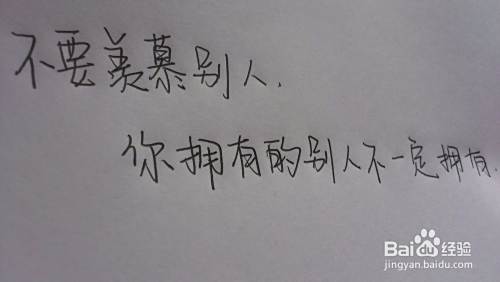 不要羡慕别人.
你拥有的别人不一定拥有.
Baidu经验
jingyan.baidu.com